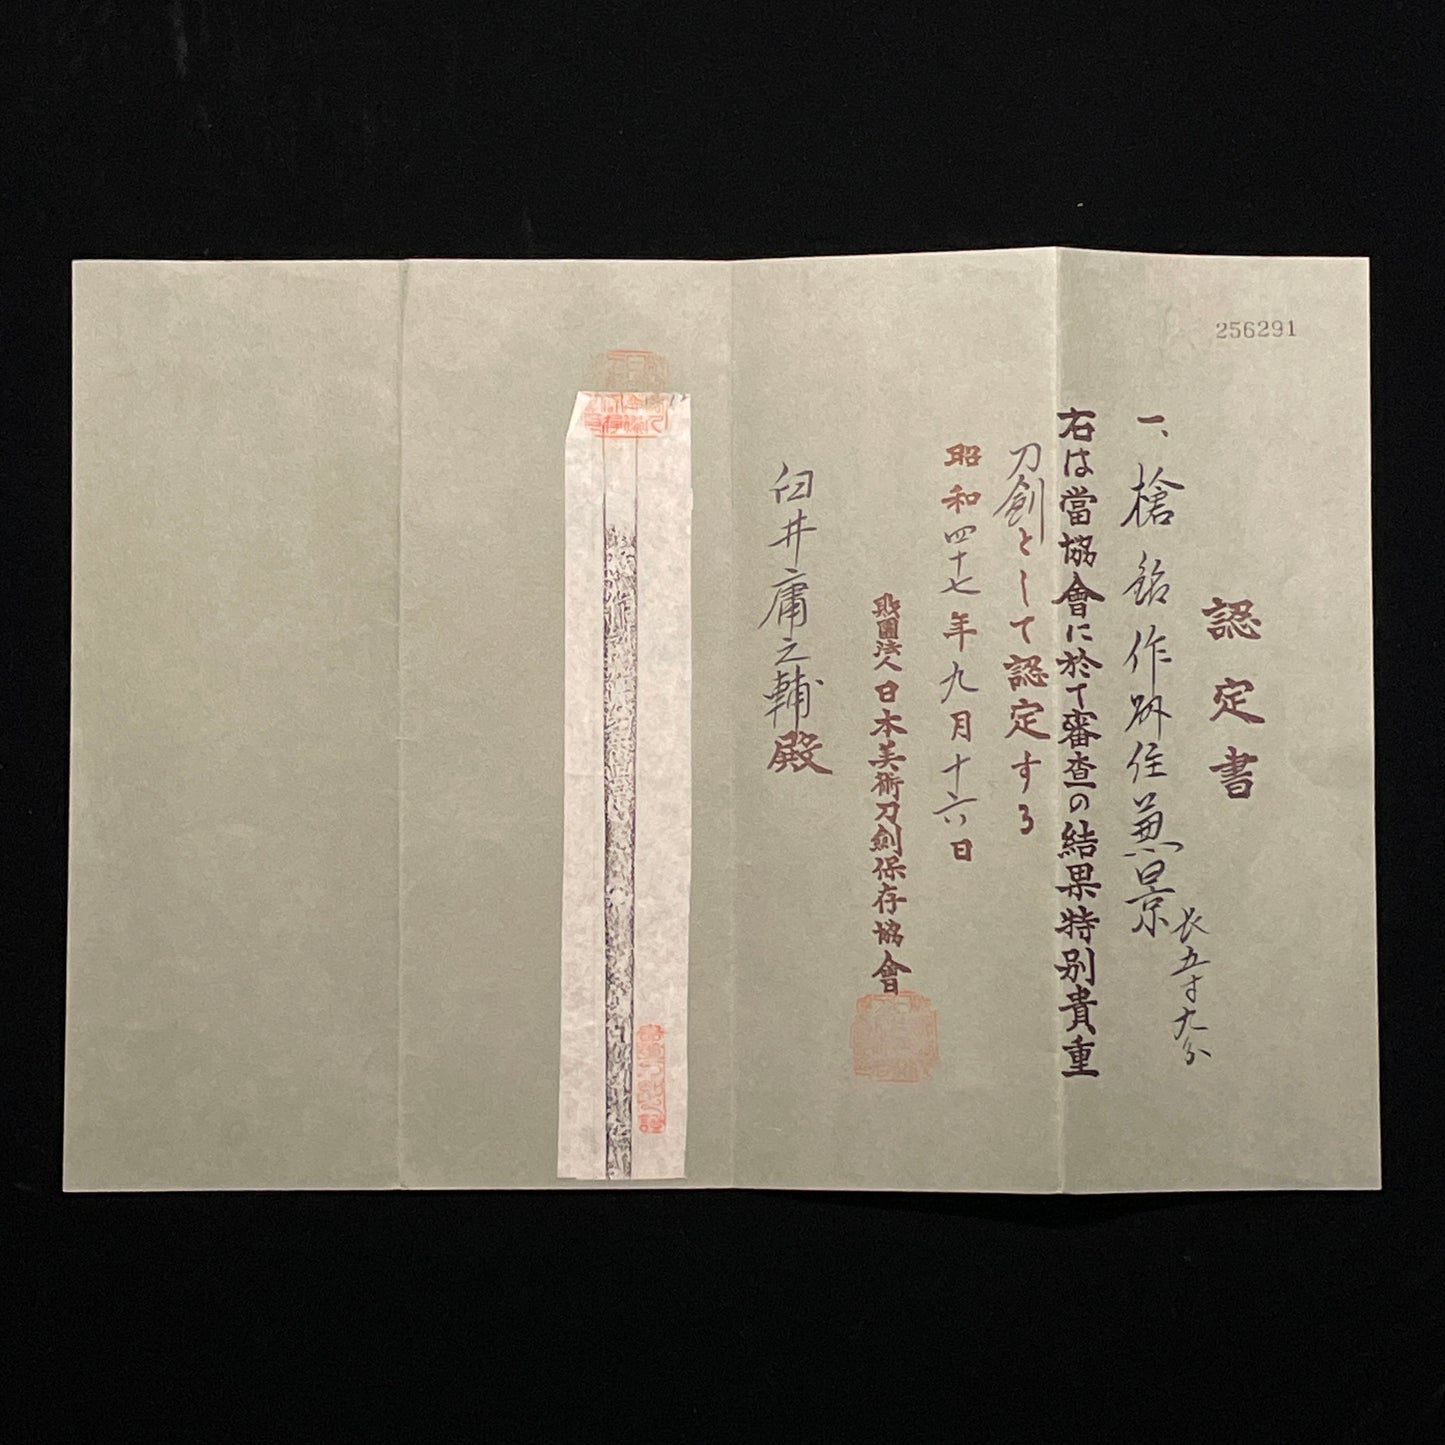 256291
認定書
一、槍 銘 作州住兼景 長五寸九分
右は當協會に於て審査の結果特別貴重
刀劍として認定する
昭和四十七年九月十六日
財團法人日本美術刀剣保存協會
臼井庸之輔殿